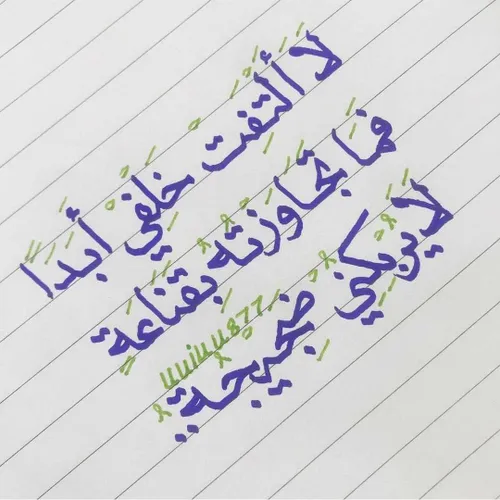 لَا أَلتَفِتْ خَلفِيْ أَبَدَاً
فَمَا تَجَاوَزتُهُ بِقَنَاعَةٍ
لَا يُربِكُنِي ضَجِيْجُهُ..
uuiuu877